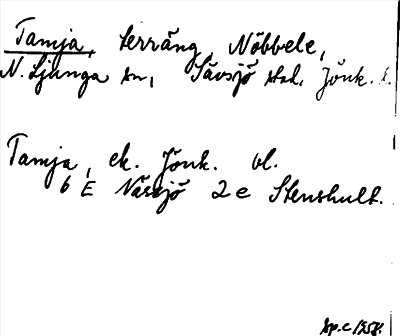 Tamja, terräng, Nöbbele,
N. Ljunga sn, Sävsjö stad, Jönk. l.
Tamja, ek. Jönk. bl.
6 E Nässjö 2 e Stenshult.
sp.c 1958.